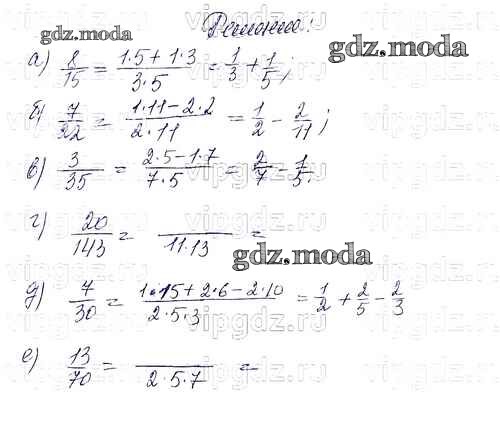 Решение:
gdz.moda
gdz.moda
а) 8/15 = (1·5 + 1·3)/(3·5) = 1/3 + 1/5;
б) 7/22 = (1·11 − 2·2)/(2·11) = 1/2 − 2/11;
в) 3/35 = (2·5 − 1·7)/(7·5) = 2/7 − 1/5.
г) 20/143 = /(11·13) =
gdz.moda
д) 7/30 = (1·15 + 2·6 − 2·10)/(2·5·3) = 1/2 + 2/5 − 2/3
е) 13/70 = /(2·5·7) =